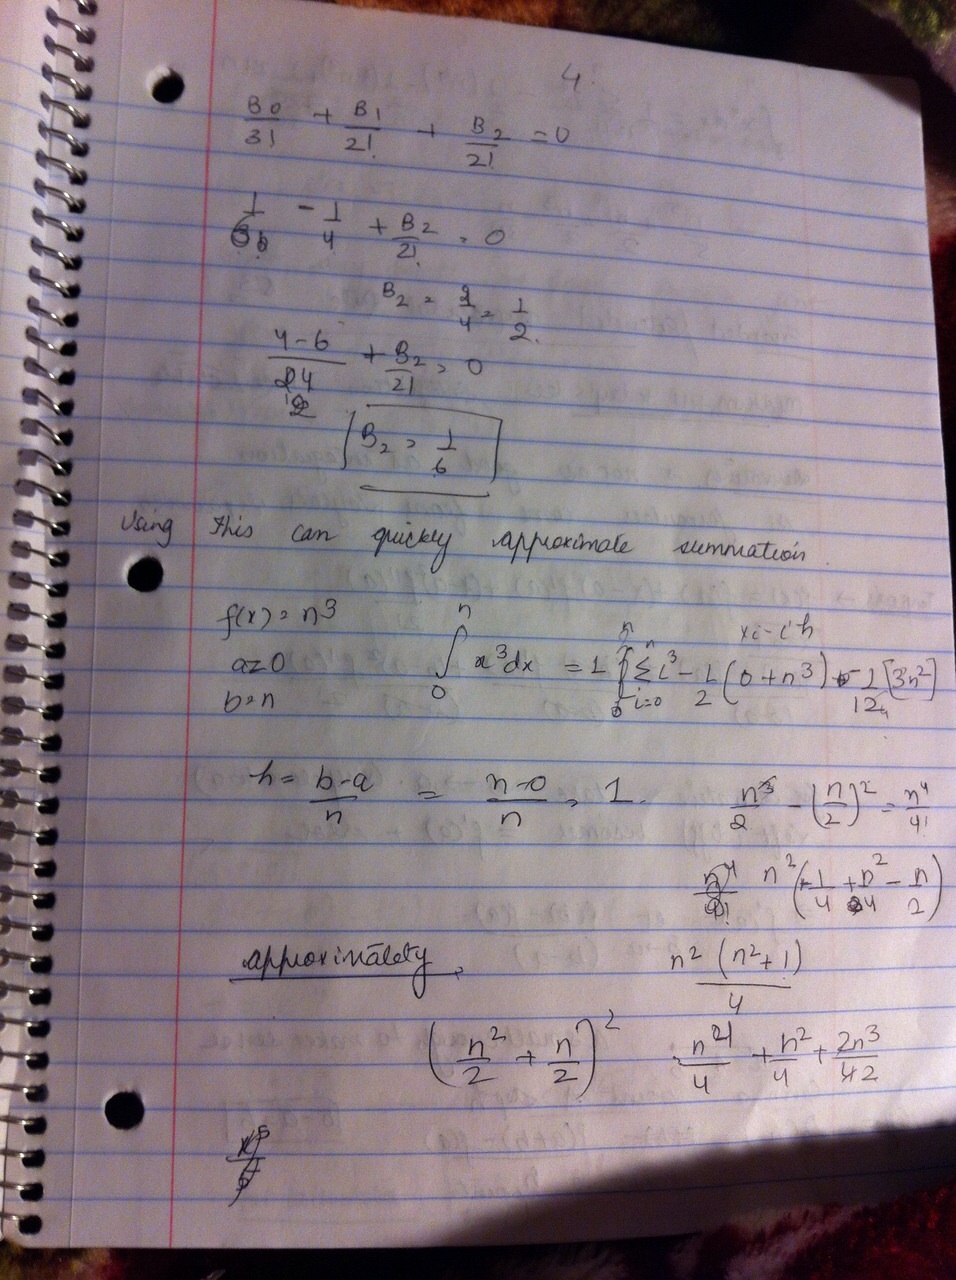 4.
B0/3! + B1/2! + B2/2! = 0
1/6 - 1/4 + B2/2! = 0
B2 = 2/4 = 1/2.
4-6/24 + B2/2! = 0
12
B2 = 1/6
Using this can quickly approximate summation
f(x) = n^3
a=0
b=n
xi - i h
∫_0^n x^3 dx = 1 ∑_{i=0}^n i^3 - 1/2 (0 + n^3) - 1/12 [3n^2]
h = b-a/n = n-0/n = 1.
n^3/2 - (n/2)^2 = n^4/4!
n^2 (-1/4 + n^2/4 - n/2)
approximately
n^2 (n^2+1)/4
(n^2/2 + n/2)^2
n^4/4 + n^2/4 + 2n^3/42